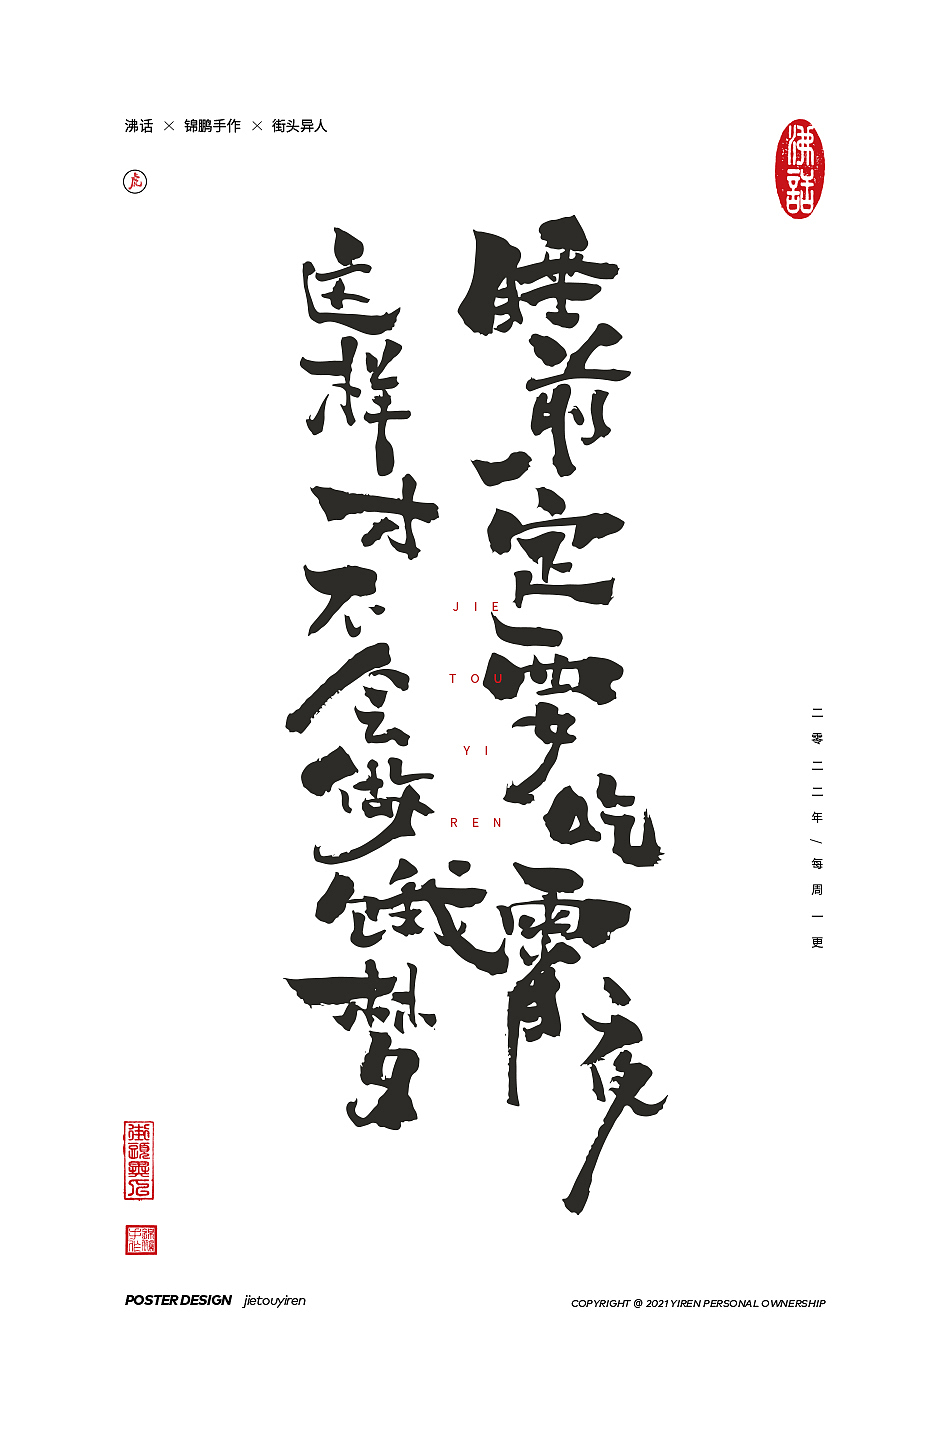 沸话 × 锦鹏手作 × 街头异人
虎
沸話
睡前一定要吃宵夜
这样才不会做饿梦
JIE
TOU
YI
REN
二零二二年/每周一更
街頭異人
POSTER DESIGN jietouyiren
COPYRIGHT @ 2021 YIREN PERSONAL OWNERSHIP